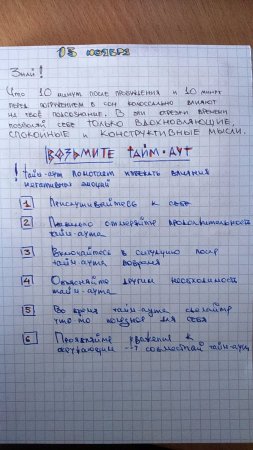 13 ноября
Знай!
Что 10 минут после пробуждения и 10 минут
перед погружением в сон колоссально влияют
на твоё подсознание. В эти отрезки времени
позволяй себе ТОЛЬКО ВДОХНОВЛЯЮЩИЕ,
СПОКОЙНЫЕ и КОНСТРУКТИВНЫЕ МЫСЛИ.
ВОЗЬМИТЕ ТАЙМ-АУТ
! Тайм-аут помогает избежать влияния
негативных эмоций
1 Прислушивайтесь к себе
2 Правильно отмеряйте продолжительность
тайм-аута
3 Включайтесь в ситуацию после
тайм-аута вовремя
4 Объясняйте другим необходимость
тайм-аута
5 Во время тайм-аута сделайте
что-то полезное для себя
6 Проявляйте уважение к
окружающим → совместный тайм-аут